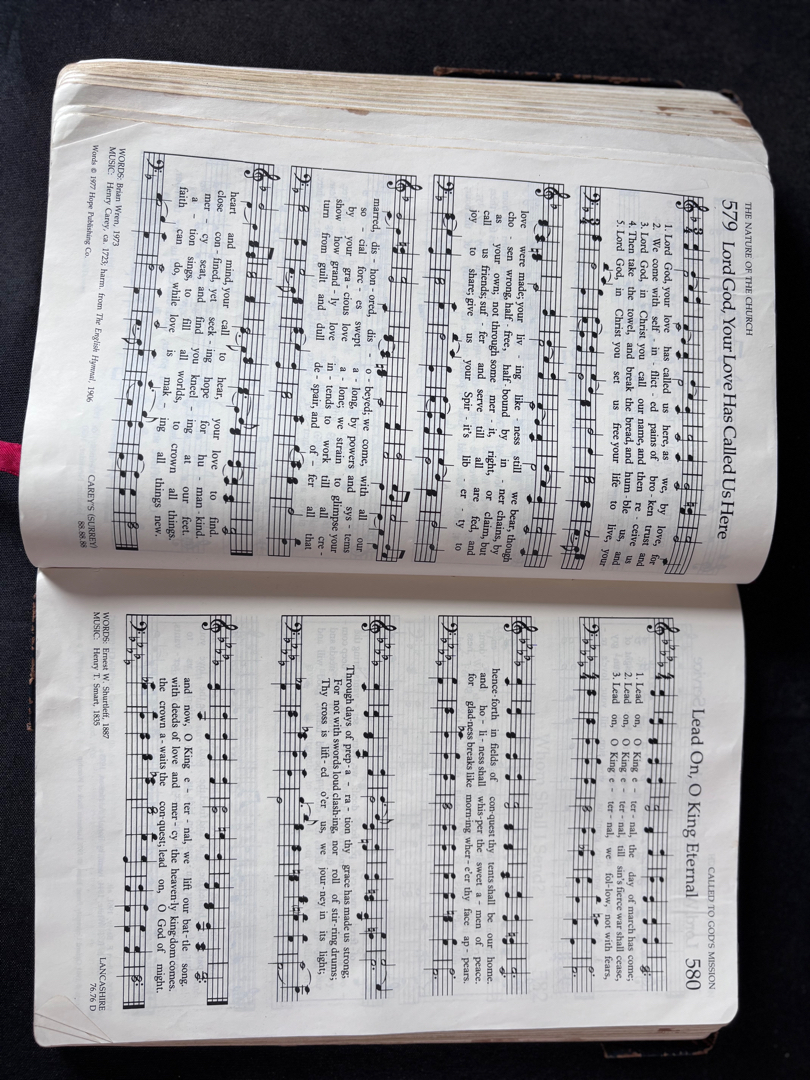 THE NATURE OF THE CHURCH
579 Lord God, Your Love Has Called Us Here
1. Lord God, your love has called us here, as we, by love, for
2. We come with self - in - flict - ed pains of bro - ken trust and
3. Lord God, in Christ you call our name, and then re - ceive us
4. Then take the towel, and break the bread, and hum - ble us, and
5. Lord God, in Christ you set us free your life to live, your
love were made; your liv - ing like - ness still we bear, though
cho - sen wrong, half - free, half - bound by in - ner chains, by
as your own; not through some mer - it, right, or claim, but
call us friends; suf - fer and serve till all are fed, and
joy to share; give us your Spir - it's lib - er - ty to
marred, dis - hon - ored, dis - o - beyed; we come, with all our
so - cial forc - es swept a - long, by powers and sys - tems
by your gra - cious love a - lone; we strain to glimpse your
show how grand - ly love in - tends to work till all cre -
turn from guilt and dull de - spair, and of - fer all that
heart and mind, your call to hear, your love to find.
close con - fined, yet seek - ing hope for hu - man - kind.
mer - cy seat, and find you kneel - ing at our feet.
a - tion sings, to fill all worlds, to crown all things.
faith can do, while love is mak - ing all things new.
WORDS: Brian Wren, 1973
MUSIC: Henry Carey, ca. 1723; harm. from The English Hymnal, 1906
Words © 1977 Hope Publishing Co.
CAREY'S (SURREY)
88.88.88
CALLED TO GOD'S MISSION
Lead On, O King Eternal 580
1. Lead on, O King e - ter - nal, the day of march has come;
2. Lead on, O King e - ter - nal, till sin's fierce war shall cease,
3. Lead on, O King e - ter - nal, we fol - low, not with fears,
hence - forth in fields of con - quest thy tents shall be our home.
and ho - li - ness shall whis - per the sweet a - men of peace.
for glad - ness breaks like morn - ing wher - e'er thy face ap - pears.
Through days of prep - a - ra - tion thy grace has made us strong;
For not with swords loud clash - ing, nor roll of stir - ring drums;
Thy cross is lift - ed o'er us, we jour - ney in its light;
and now, O King e - ter - nal, we lift our bat - tle song.
with deeds of love and mer - cy the heaven - ly king - dom comes.
the crown a - waits the con - quest; lead on, O God of might.
WORDS: Ernest W. Shurtleff, 1887
MUSIC: Henry T. Smart, 1835
LANCASHIRE
76.76 D